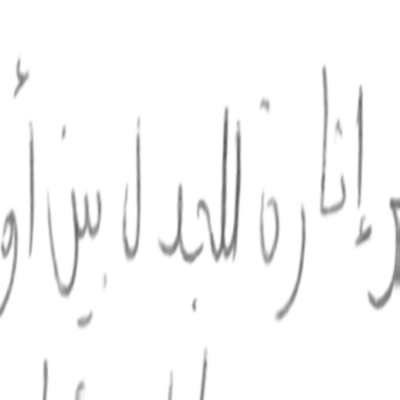 إثارة للجدل بين أو